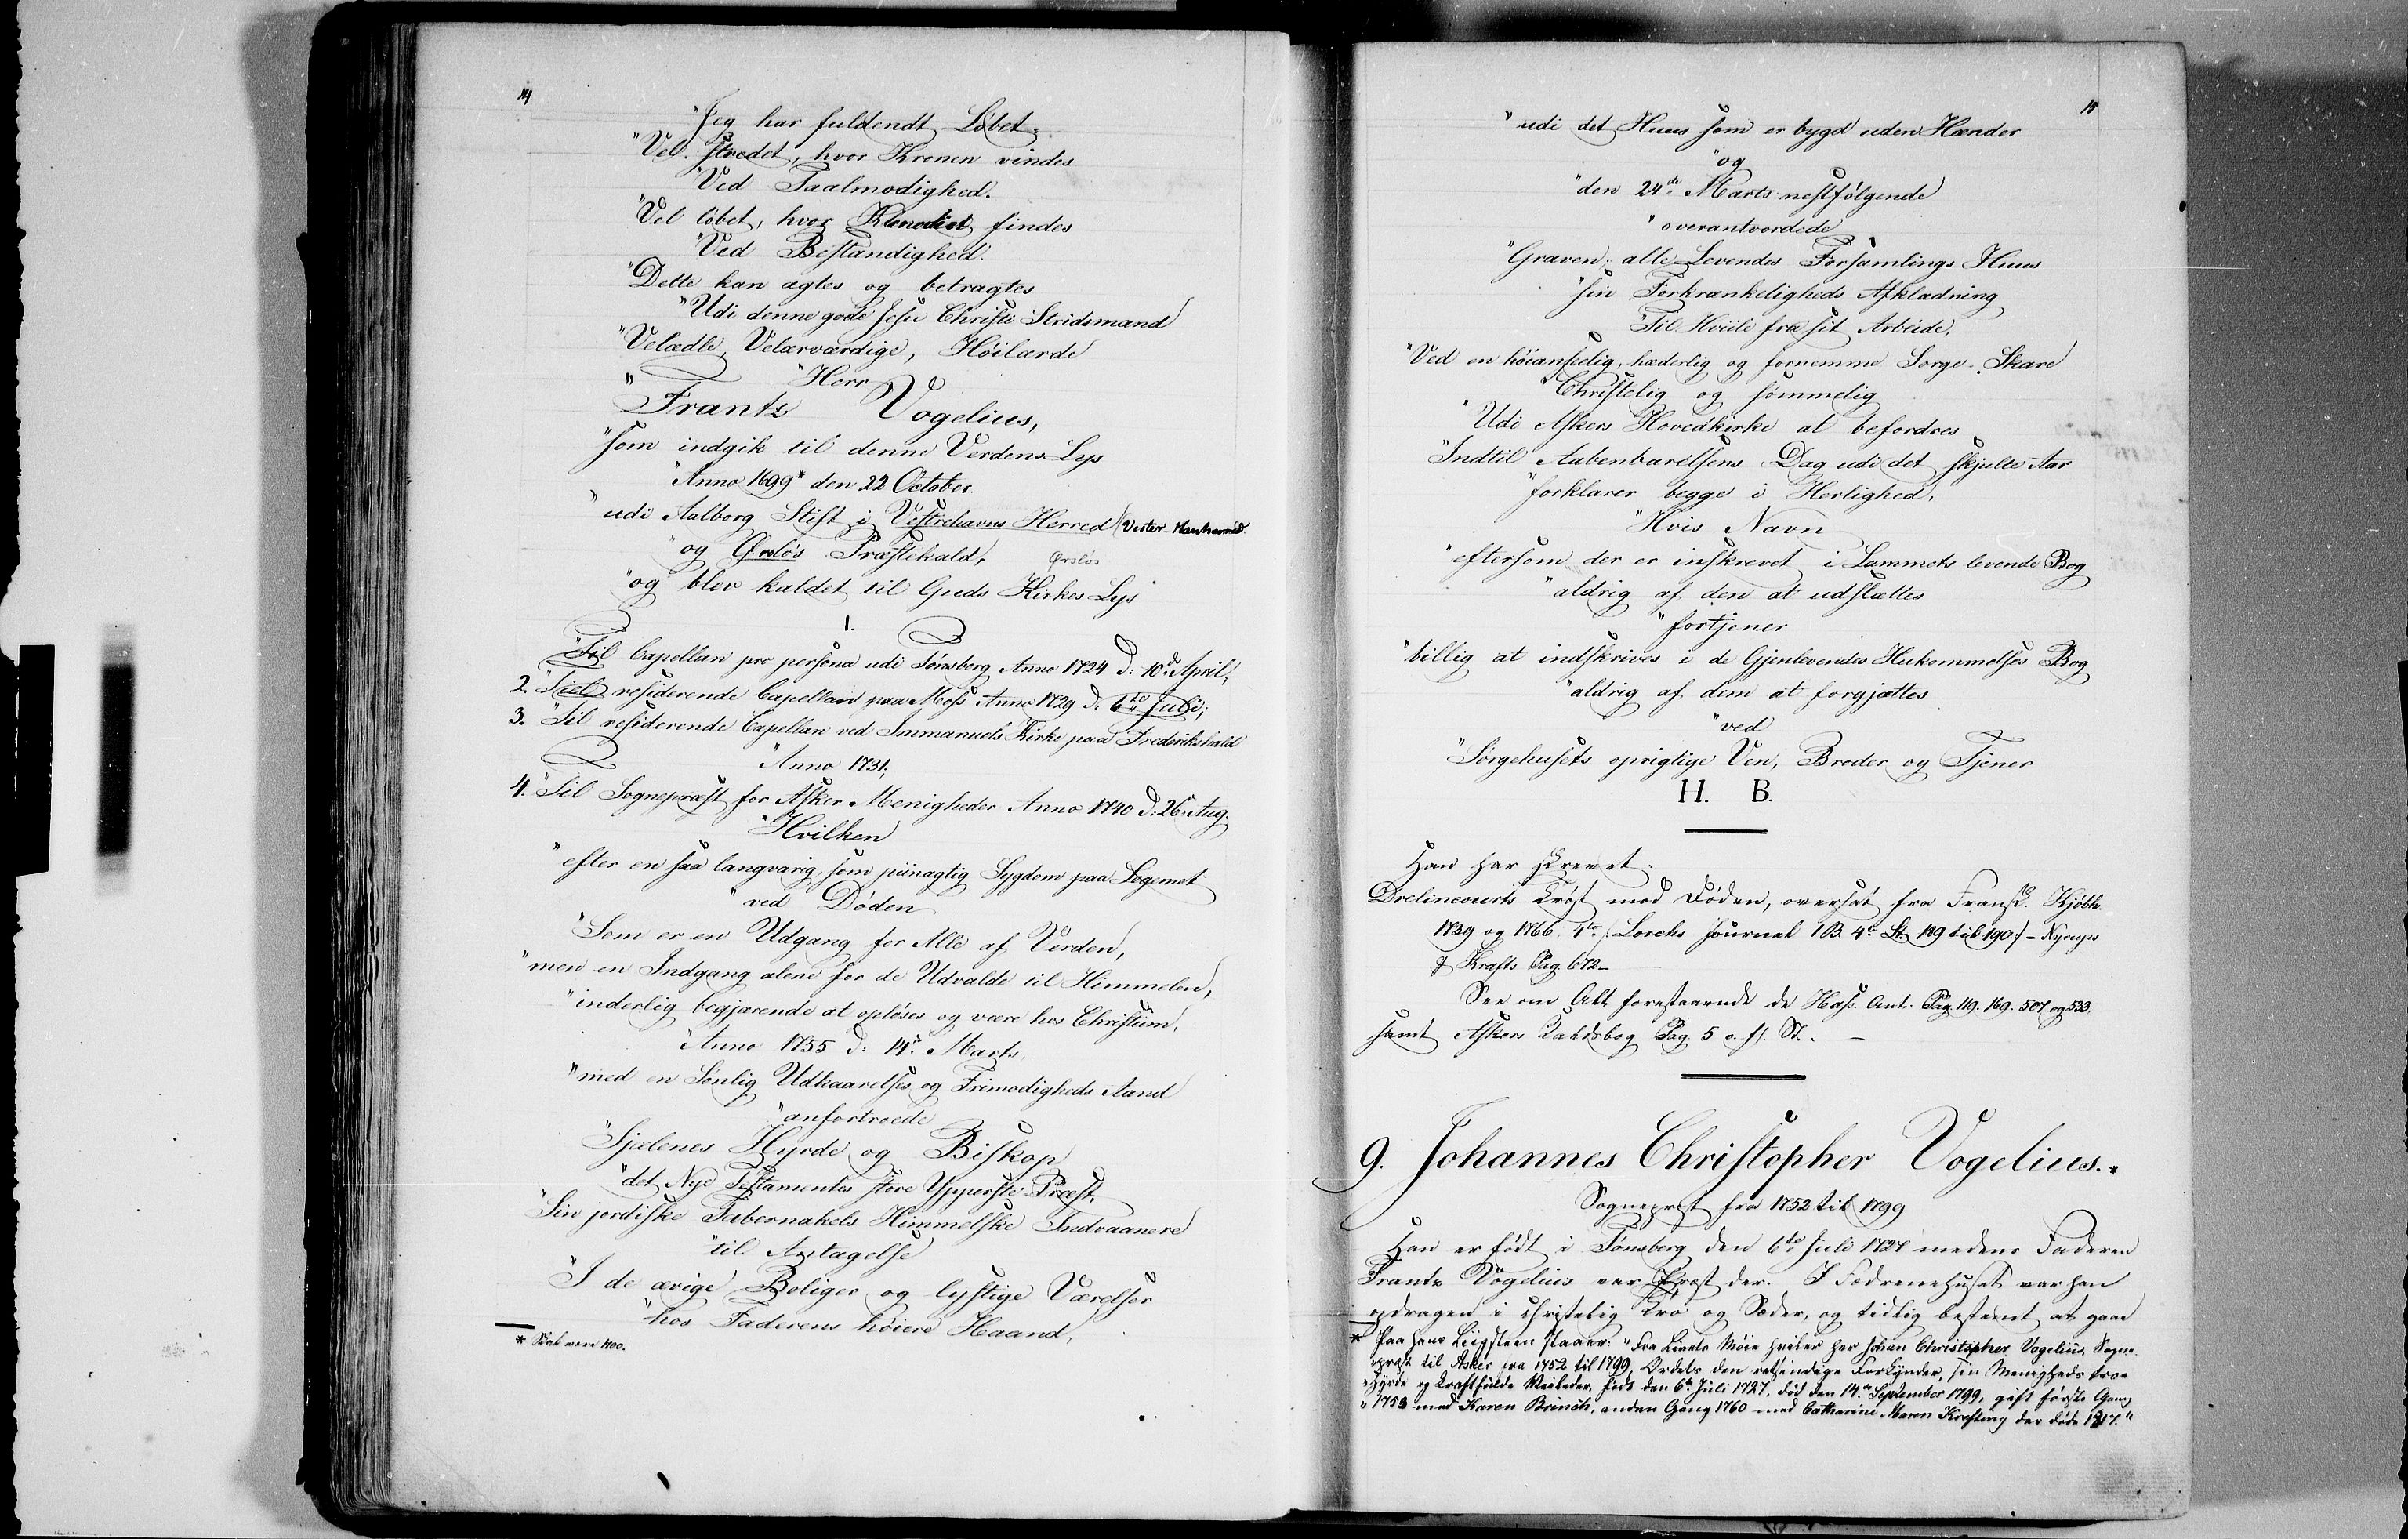 14
"Jeg har fuldendt Løbet.
"Vel stredet, hvor Kronen vindes
"Ved Taalmodighed.
"Vel løbet, hvor Klenodiet findes
"Ved Bestandighed.
"Dette kan agtes og betragtes
"Udi denne gode Jesu Christi Stridsmand
"Velædle, Velærværdige, Høilærde
"Herr
"Frantz Vogelius,
"som indgik til denne Verdens Lys
"Anno 1699* den 22 October.
"udi Aalborg Stift i Vestrehavns Herred (Vester-Hanherred
"og Øsløs Præstekald,
Øsløs
"og blev kaldet til Guds Kirkes Lys
1.
"Til Capellan pro persona udi Tønsberg Anno 1724 d: 10de April,
2. "Til residerende Capellan paa Moss Anno 1729 d: 6te Juli;
3. "Til residerende Capellan ved Immanuels Kirke paa Frederikshald
"Anno 1731;
4. "Til Sognepræst for Asker Menigheder Anno 1740 d: 26de Aug.
"Hvilken
"efter en saa langvarig, som piinagtig Sygdom paa Legemet
"ved Døden
"Som er en Udgang for Alle af Verden,
"men en Indgang alene for de Udvalde til Himmelen,
"inderlig begjærende at opløses og være hos Christum,
"Anno 1755 d: 14de Marts.
"med en Sønlig Udkaarelses og Frimodigheds Aand
"anfortroede
"Sjælenes Hyrde og Biskop
"det Nye Testamentes store Ypperste-Præst,
"Sin jordiske Tabernakels Himmelske Indvaanere
"til Antagelse
"I de ævige Boliger og lystige Værelser
"hos Faderens høiere Haand,
* Skal være 1700.
15
"udi det Huus som er bygd uden Hænder
"og
"den 24de Marts nestfølgende
"overantvordede
"Graven: alle Levendes Forsamlings Huus
"sin Forkrænkeligheds Afklædning
"Til Hviile fra sit Arbeide,
"Ved en høianseelig, hæderlig og fornemme Sorge-Skare
"Christelig og sømmelig
"Udi Askers Hovedkirke at befordres
"Indtil Aabenbarelsens Dag udi det skjulte Aar
"forklarer begge i Herlighed,
"Hvis Navn
"eftersom der er inskrevet i Lammets levende Bog
"aldrig af den at udslættes
"fortjener
"billig at indskrives i de Gjenlevendes Hukommelses Bog
"aldrig af dem at forgjættes
"ved
"Sørgehusets oprigtige Ven, Broder og Tjener
H. B.
Han har skrevet:
Drelincourts Trøst mod Døden, oversat fra Fransk. Kjøbh.
1739 og 1766. 4to /: Lorcks Journal 1 B. 4de St. 189 til 190:/ - Nyerups
& Krafts Pag. 672 -
See om Alt forestaaende de Hass. Ant. Pag. 119. 169. 507 og 533.
samt Askers Kaldsbog Pag. 5 o. fl. St. -
9. Johannes Christopher Vogelius. *
Sogneprest fra 1752 til 1799
Han er født i Tønsberg den 6te Juli 1727 medens Faderen
Frantz Vogelius var Prest der. I Fædrenehuset var han
opdragen i christelig Tro og Sæder, og tidlig bestemt at gaae
* Paa hans Liigsteen staaer: "Fra Livets Møie hviler her Johan Christopher Vogelius, Sogne-
"præst til Asker fra 1752 til 1799, Ordets den retsindige Forkynder, sin Menigheds troe
"Hyrde og kraftfulde Veileder, født den 6te Juli 1727, død den 14de September 1799, gift første Gang
"1753 med Karen Brinch, anden Gang 1760 med Catharine Maren Kjefting der døde 1817."